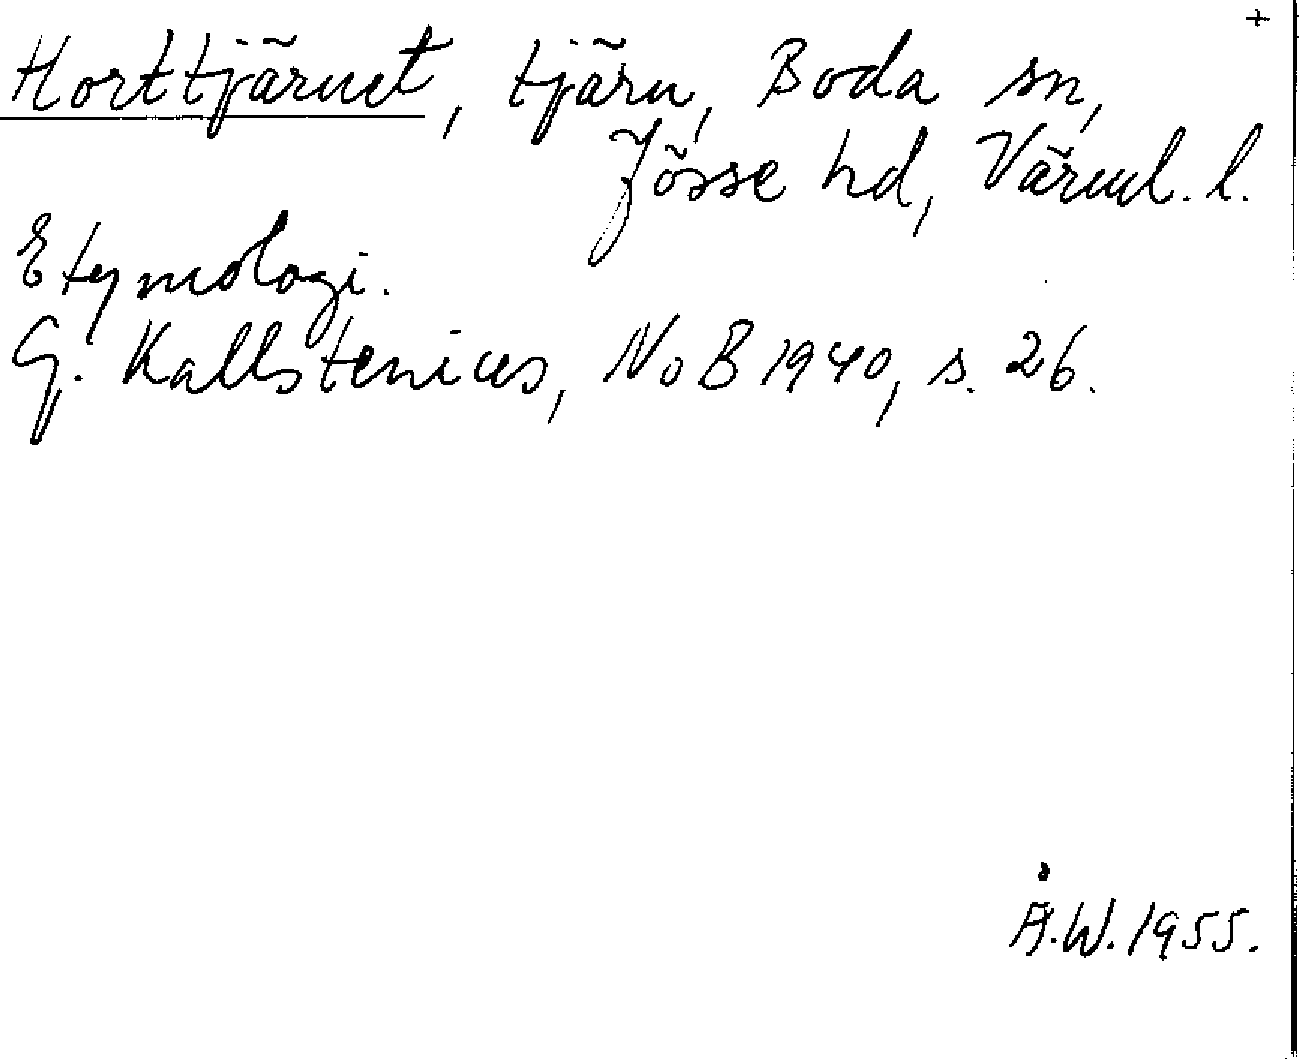 +
Horttjärnet, tjärn, Boda sn,
Jösse hd, Värml. l.
Etymologi.
G. Kallstenius, NoB 1940, s. 26.
Å.W. 1955.